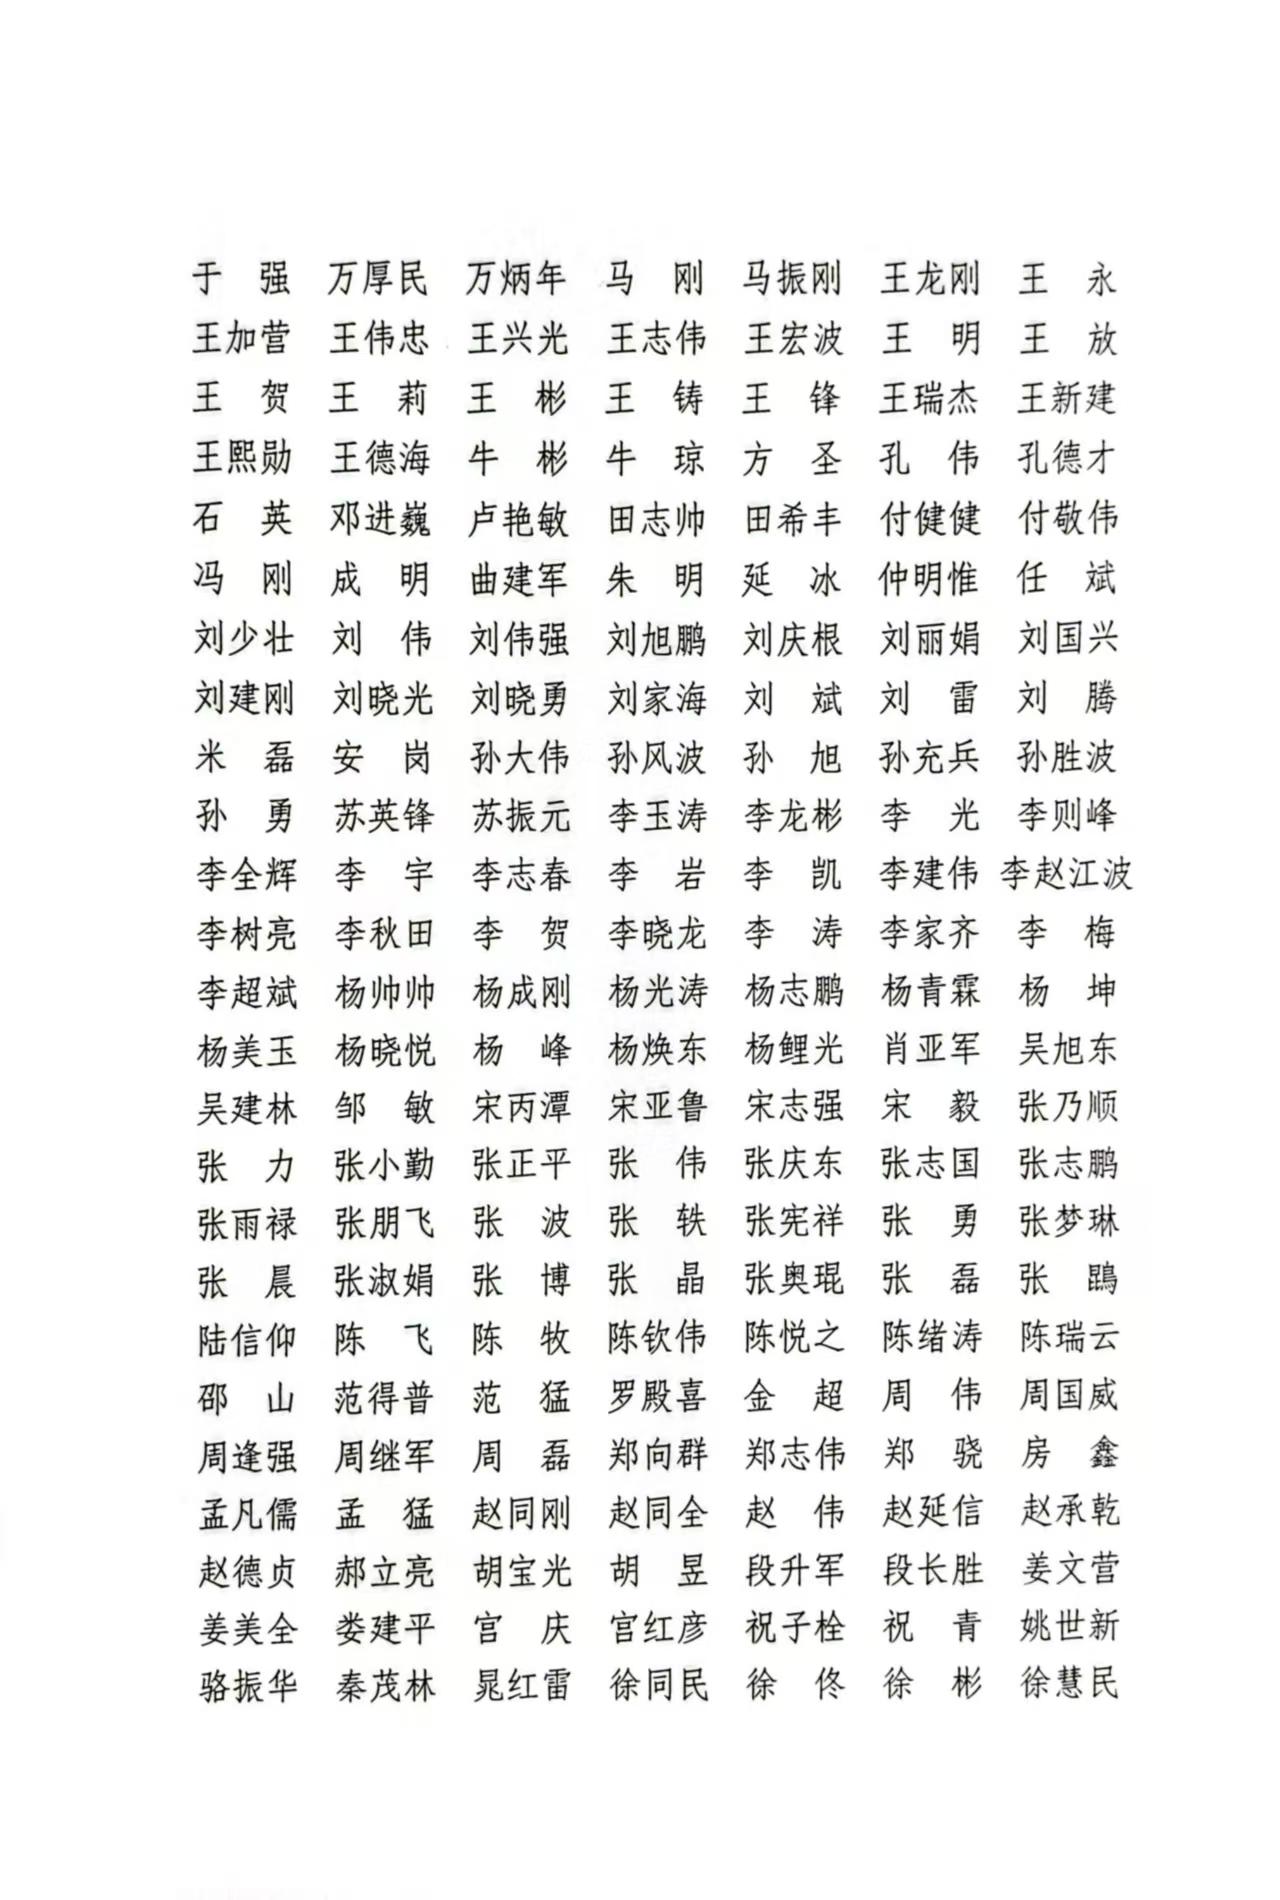 于　强 万厚民 万炳年 马　刚 马振刚 王龙刚 王　永
王加营 王伟忠 王兴光 王志伟 王宏波 王　明 王　放
王　贺 王　莉 王　彬 王　铸 王　锋 王瑞杰 王新建
王熙勋 王德海 牛　彬 牛　琼 方　圣 孔　伟 孔德才
石　英 邓进巍 卢艳敏 田志帅 田希丰 付健健 付敬伟
冯　刚 成　明 曲建军 朱　明 延　冰 仲明惟 任　斌
刘少壮 刘　伟 刘伟强 刘旭鹏 刘庆根 刘丽娟 刘国兴
刘建刚 刘晓光 刘晓勇 刘家海 刘　斌 刘　雷 刘　腾
米　磊 安　岗 孙大伟 孙风波 孙　旭 孙充兵 孙胜波
孙　勇 苏英锋 苏振元 李玉涛 李龙彬 李　光 李则峰
李全辉 李　宇 李志春 李　岩 李　凯 李建伟 李赵江波
李树亮 李秋田 李　贺 李晓龙 李　涛 李家齐 李　梅
李超斌 杨帅帅 杨成刚 杨光涛 杨志鹏 杨青霖 杨　坤
杨美玉 杨晓悦 杨　峰 杨焕东 杨鲤光 肖亚军 吴旭东
吴建林 邹　敏 宋丙潭 宋亚鲁 宋志强 宋　毅 张乃顺
张　力 张小勤 张正平 张　伟 张庆东 张志国 张志鹏
张雨禄 张朋飞 张　波 张　轶 张宪祥 张　勇 张梦琳
张　晨 张淑娟 张　博 张　晶 张奥琨 张　磊 张
陆信仰 陈　飞 陈　牧 陈钦伟 陈悦之 陈绪涛 陈瑞云
邵　山 范得普 范　猛 罗殿喜 金　超 周　伟 周国威
周逢强 周继军 周　磊 郑向群 郑志伟 郑　骁 房　鑫
孟凡儒 孟　猛 赵同刚 赵同全 赵　伟 赵延信 赵承乾
赵德贞 郝立亮 胡宝光 胡　昱 段升军 段长胜 姜文营
姜美全 娄建平 宫　庆 宫红彦 祝子栓 祝　青 姚世新
骆振华 秦茂林 晁红雷 徐同民 徐　佟 徐　彬 徐慧民